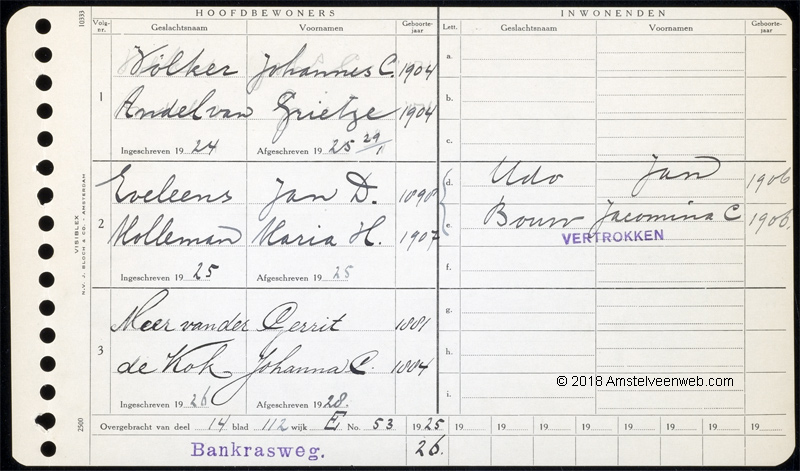 HOOFDBEWONERS INWONENDEN
Volg-nr. Geslachtsnaam Voornamen Geboorte-jaar Lett. Geslachtsnaam Voornamen Geboorte-jaar
10333
1
Völker Johannes C. 1904
Andel van Grietze 1904
Ingeschreven 19 24 Afgeschreven 19 25 29/1
a.
b.
c.
2
Eveleens Jan D. 1898
Molleman Maria H. 1907
Ingeschreven 19 25 Afgeschreven 19 25
d. Udo Jan 1906
e. Bouw Jacomina C 1906.
VERTROKKEN
f.
VISIBLEX
N.V. J. BLOCH & CO. - AMSTERDAM
3
Meer van der Gerrit 1881
de Kok Johanna C. 1884
Ingeschreven 19 26 Afgeschreven 19 28.
g.
h.
i.
© 2018 Amstelveenweb.com
2500
Overgebracht van deel 14 blad 112 wijk E No. 53 19 25 19 19 19 19 19 19 19
Bankrasweg. 26.